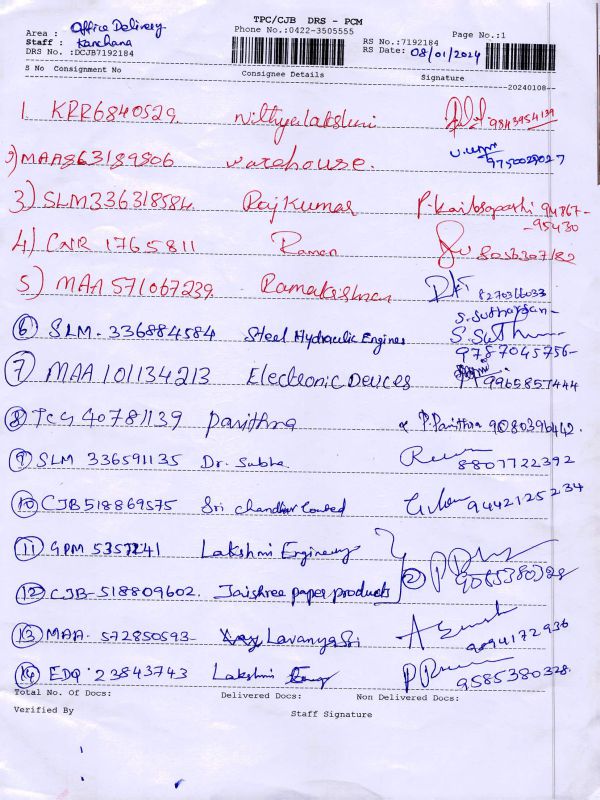 TPC/CJB DRS - PCM
Area : Office Delivery Phone No.:0422-3505555 Page No.:1
Staff : Kanchana RS No.:7192184
DRS No. :DCJB7192184 RS Date: 08/01/2024
S No Consignment No Consignee Details Signature
20240108
1. KRR6840529. Nithyalakshmi 9843954139
2) MAA863189806 warehouse. 9750029027
3) SLM336318584 Rajkumar 94867-
-95430
4) CNR 1765811 Raman 8056307182
5) MAA 571067239. Ramakrishnan 8270366033
S. Sutharsan-
6 SLM- 336884584 Steel Hydraulic Engines
9787045756-
7 MAA 101134213 Electronic Devices 9965857444
8 TCG 40781139 Pavithra P. Pavithra 9080396442.
9 SLM 336591135 Dr. Subha. 8807722392
10 CJB518869575 Sri 9442125234
11 GPM 5357241 Lakshmi Engineering
2 9085380328
12 CJB-518809602. Jaishree paper products
13 MAA- 572850593- LavanyaSri 9094172936
14 EDQ 23843743 Lakshmi 9585380328.
Total No. Of Docs: Delivered Docs: Non Delivered Docs:
Verified By Staff Signature